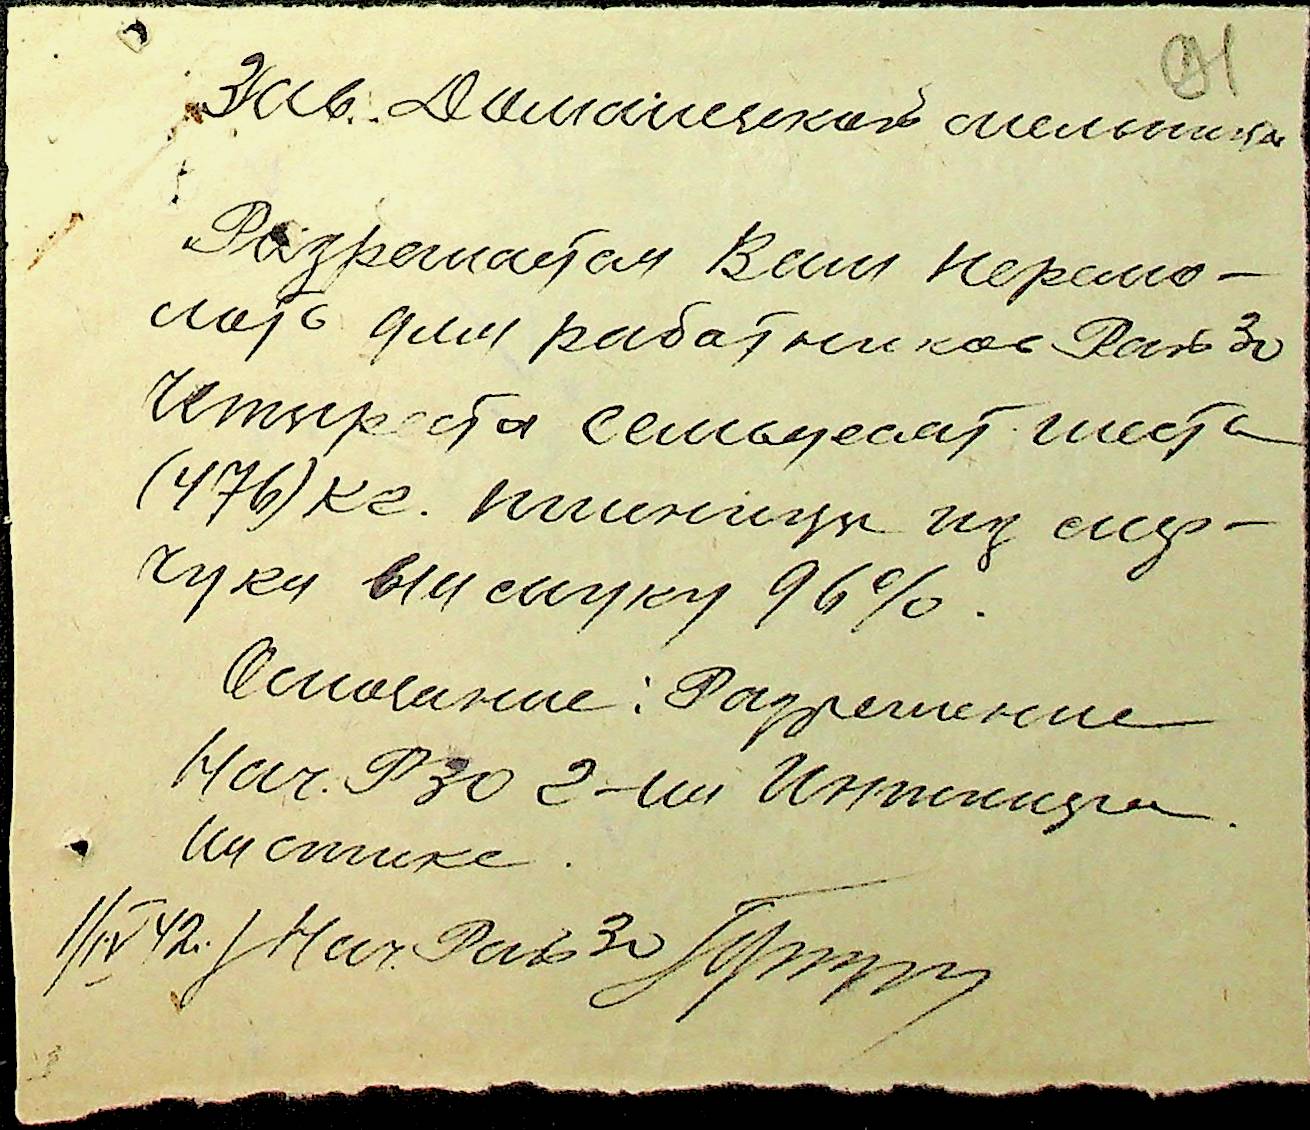 91
Зав. Доманецкой мельница
Разрешается Вам перемо-
лоть для работников РайЗо
Четыреста семьдесят шесть
(476) кг. пшеницы из мир-
чука на муку 96%.
Основание: Разрешение
Нач. РЗО 2-на
на
11/IV 42. Нач. РайЗо